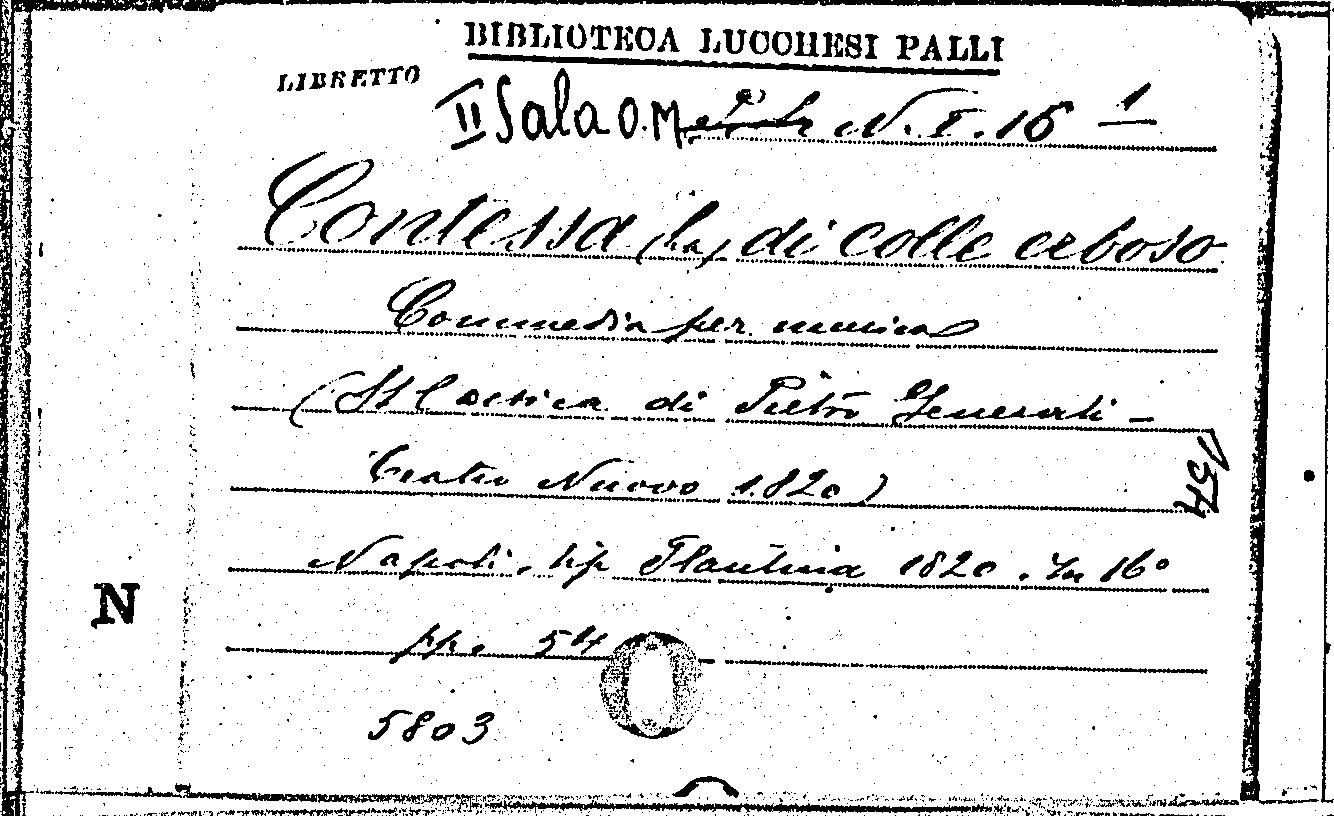 BIBLIOTECA LUCCHESI PALLI
LIBRETTO
II Sala O. M N. I. 16 1
Contessa (La) di colle erboso
Commedia per musica
(Musica di Pietro Generali -
Teatro Nuovo 1820)
1514
Napoli, tip Flautina 1820. In 16°
N
pp. 54
5803